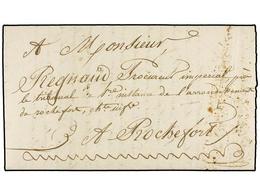 A Monsieur
Regnaud Procureur impérial près
le tribunal de 1re instance de l'arrondissement
de rochefort, chte infre
A Rochefort